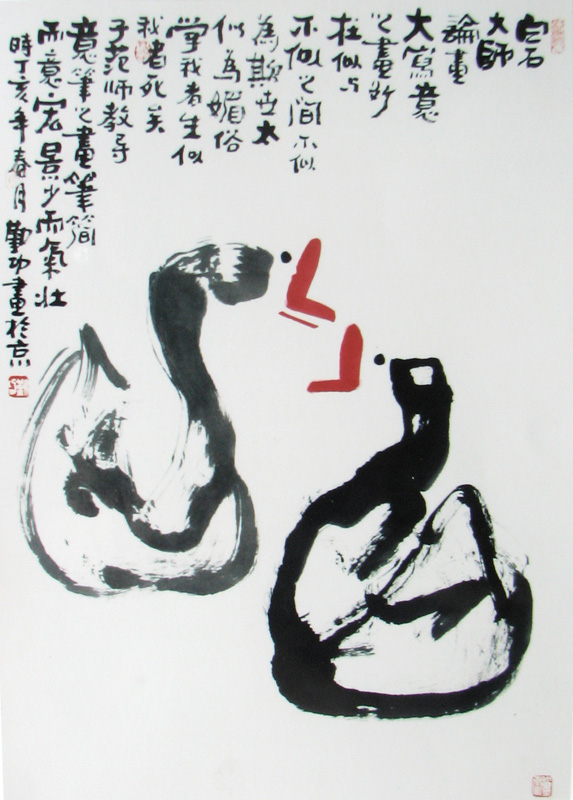 白石
大師
論畫
大寫意
之畫妙
在似与
不似之間不似
為欺世太
似為媚俗
學我者生似
我者死矣
子范師教导
意筆之畫筆簡
而意宏景少而氣壯
時丁亥年春月勤功畫於京